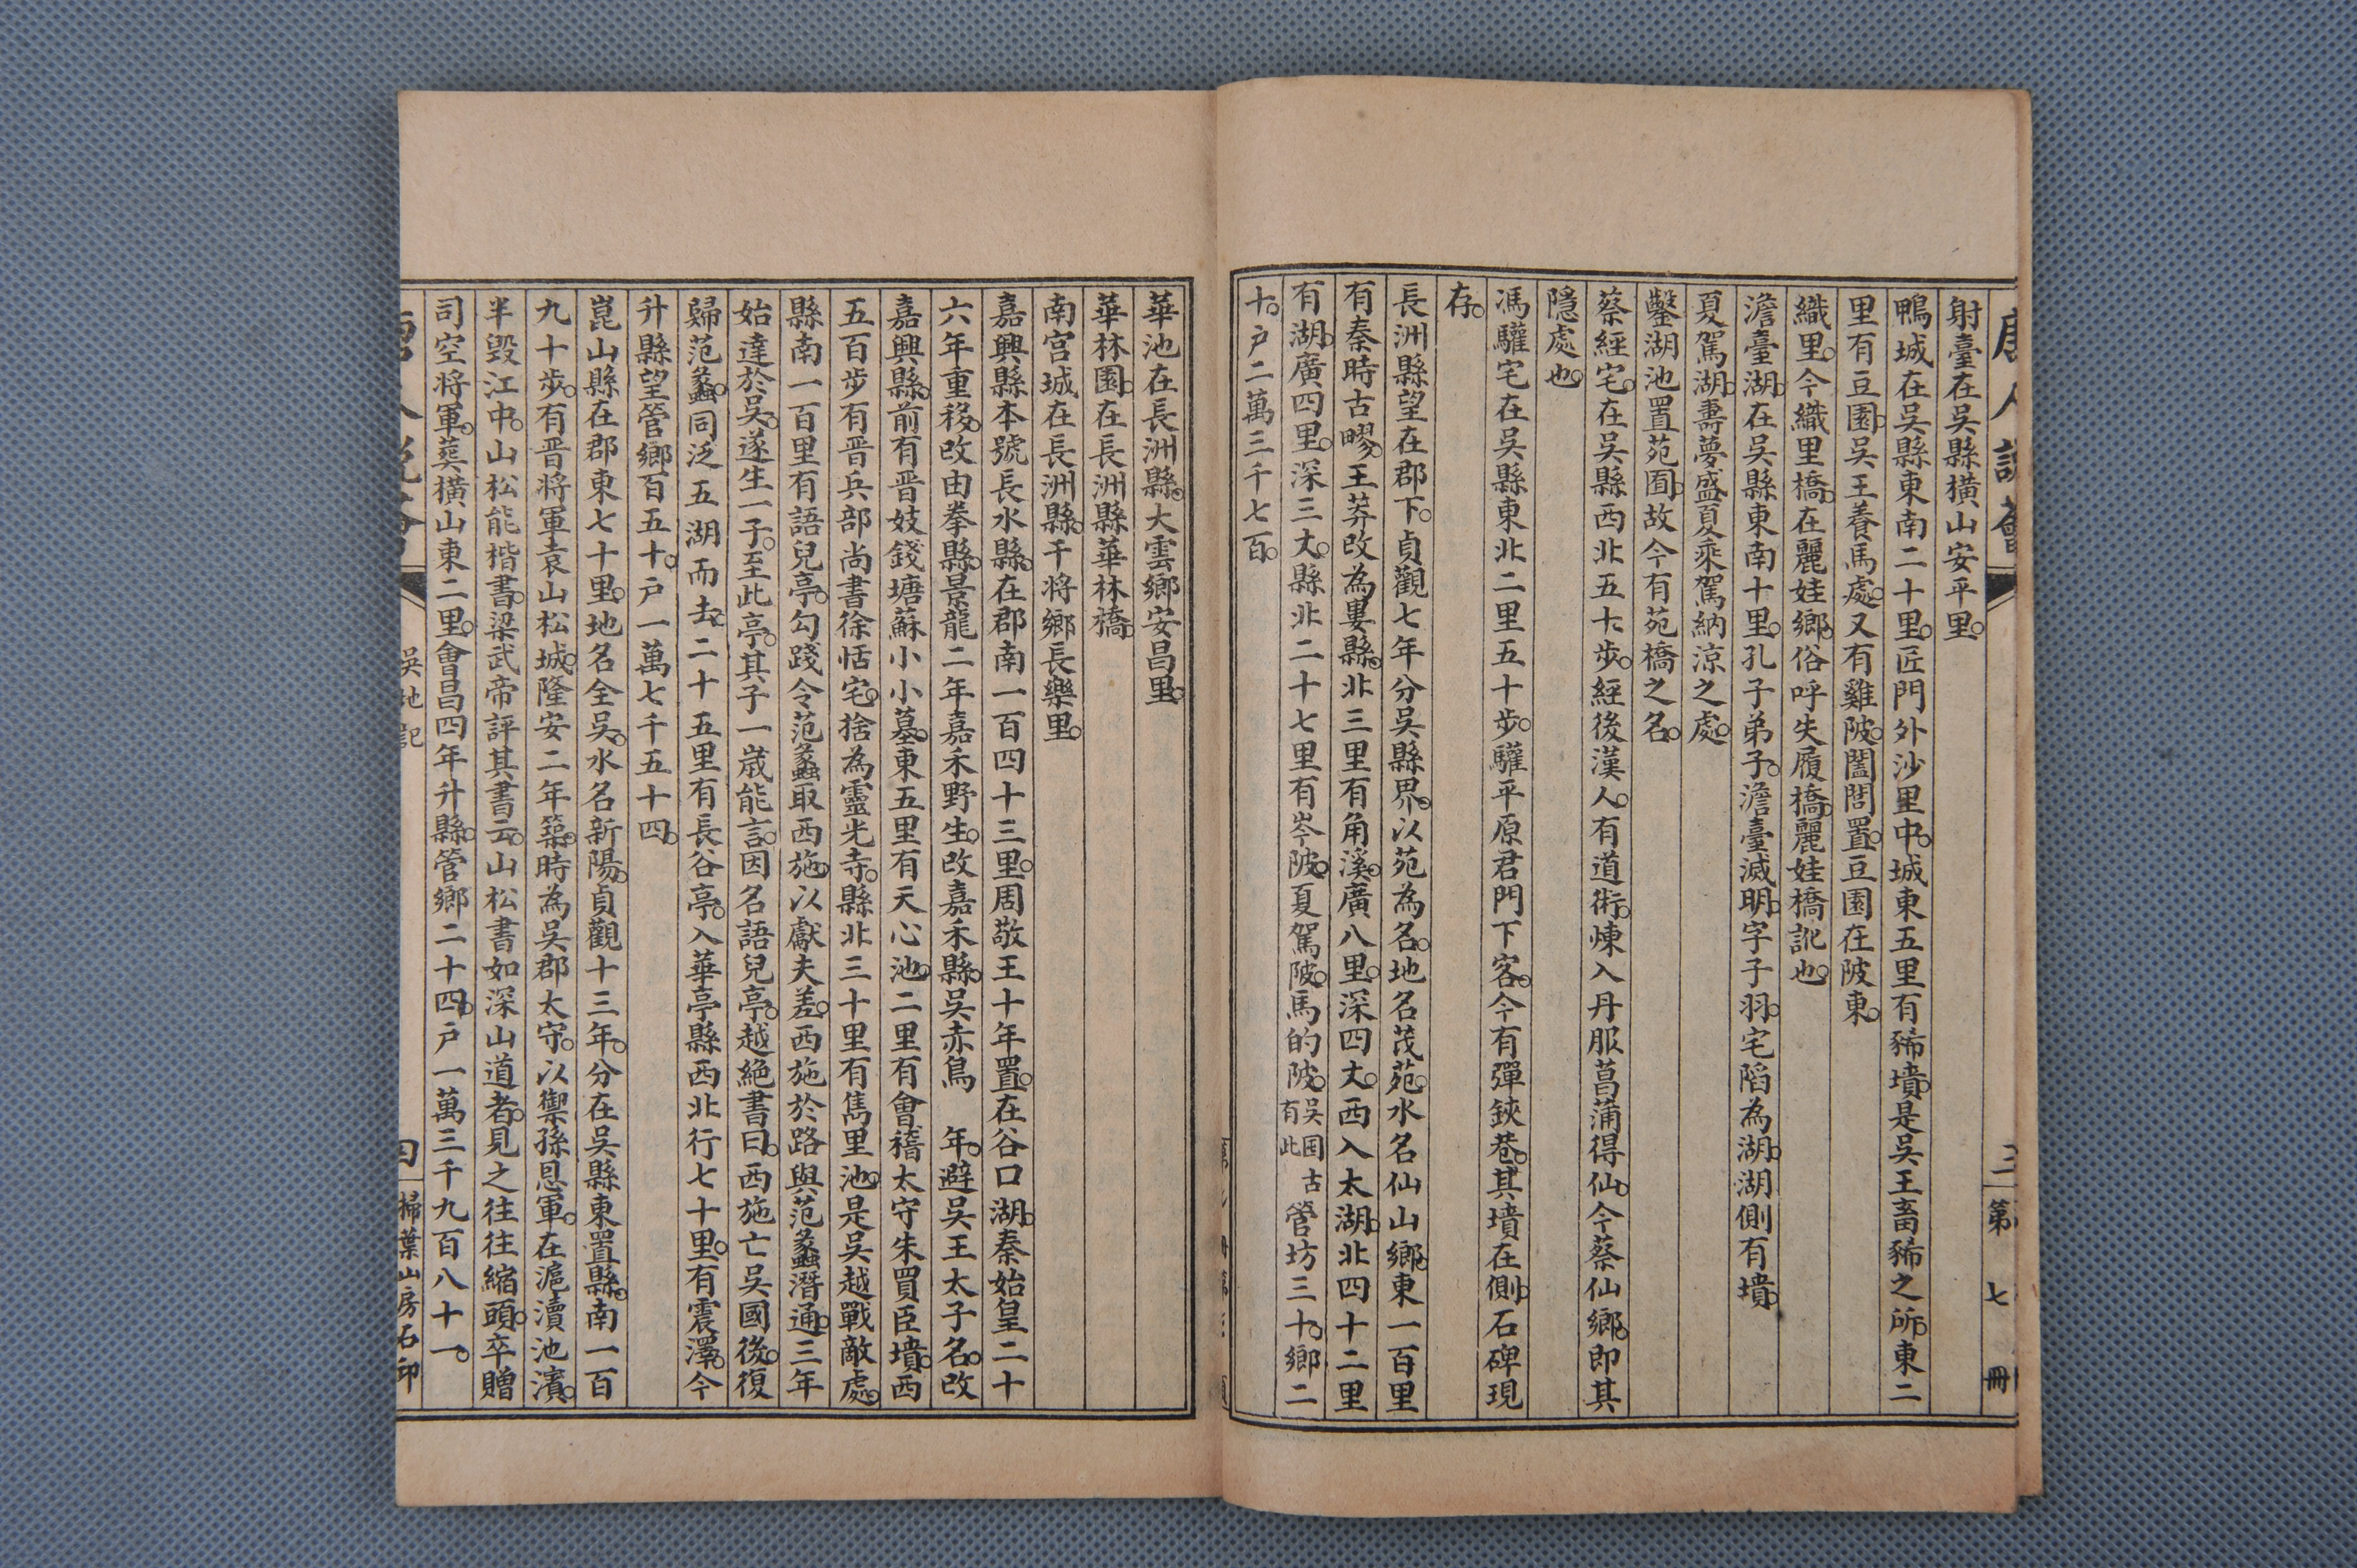 唐人說薈
三
第七冊
射臺在吳縣橫山安平里。
鴨城在吳縣東南二十里。匠門外沙里中。城東五里有豨墳。是吳王畜豨之所。東二
里有豆園。吳王養馬處。又有雞陂。闔閭置。豆園在陂東。
織里。今織里橋。在麗娃鄉。俗呼失履橋。麗娃橋訛也。
澹臺湖。在吳縣東南十里。孔子弟子。澹臺滅明。字子羽。宅陷為湖。湖側有墳。
夏駕湖。壽夢盛夏乘駕納涼之處。
鑿湖池置苑囿。故今有苑橋之名。
蔡經宅。在吳縣西北五十步。經後漢人。有道術。煉入丹服菖蒲得仙。今蔡仙鄉。即其
隱處也。
馮驩宅在吳縣東北二里五十步。驩平原君門下客。今有彈鋏巷。其墳在側。石碑現
存。
長洲縣望在郡下。貞觀七年分吳縣界。以苑為名。地名茂苑。水名仙山鄉。東一百里
有秦時古疁。王莽改為婁縣。北三里有角溪。廣八里。深四丈。西入太湖。北四十二里
有湖。廣四里。深三丈。縣北二十七里有岑陂。夏駕陂。馬的陂。吳國古有此營坊三十。鄉二
十。戶二萬三千七百。
華池在長洲縣。大雲鄉安昌里。
華林園。在長洲縣華林橋。
南宮城在長洲縣。干將鄉長樂里。
嘉興縣本號長水縣。在郡南一百四十三里。周敬王十年置。在谷口湖。秦始皇二十
六年重移。改由拳縣。景龍二年嘉禾野生。改嘉禾縣。吳赤烏 年。避吳王太子名。改
嘉興縣。前有晉妓錢塘蘇小小墓。東五里有天心池。二里有會稽太守朱買臣墳。西
五百步有晉兵部尚書徐恬宅。捨為靈光寺。縣北三十里有雋里池。是吳越戰敵處。
縣南一百里有語兒亭。勾踐令范蠡取西施。以獻夫差。西施於路與范蠡潛通。三年
始達於吳。遂生一子。至此亭。其子一歲能言。因名語兒亭。越絕書曰。西施亡吳國後。復
歸范蠡。同泛五湖而去。二十五里有長谷亭。入華亭縣西北行七十里。有震澤。今
升縣望管鄉百五十。戶一萬七千五十四。
崑山縣在郡東七十里。地名全吳。水名新陽。貞觀十三年。分在吳縣東置縣。南一百
九十步。有晉將軍袁山松城。隆安二年築。時為吳郡太守。以禦孫恩軍。在滬瀆池濱。
半毀江中。山松能楷書。梁武帝評其書云。山松書如深山道者。見之往往縮頭。卒贈
司空將軍。葬橫山東二里。會昌四年升縣。管鄉二十四。戶一萬三千九百八十一。
吳地記
四
掃葉山房石印